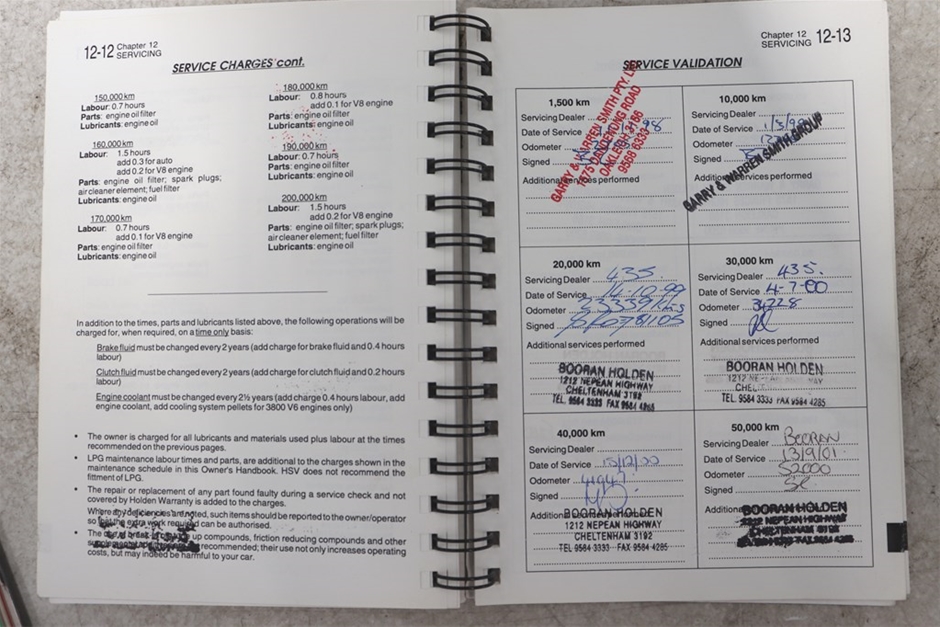 12-12 Chapter 12
SERVICING
SERVICE CHARGES cont.
150,000 km
Labour: 0.7 hours
Parts: engine oil filter
Lubricants: engine oil
160,000 km
Labour: 1.5 hours
add 0.3 for auto
add 0.2 for V8 engine
Parts: engine oil filter; spark plugs;
air cleaner element; fuel filter
Lubricants: engine oil
170,000 km
Labour: 0.7 hours
add 0.1 for V8 engine
Parts: engine oil filter
Lubricants: engine oil
180,000 km
Labour: 0.8 hours
add 0.1 for V8 engine
Parts: engine oil filter
Lubricants: engine oil
190,000 km
Labour: 0.7 hours
Parts: engine oil filter
Lubricants: engine oil
200,000 km
Labour: 1.5 hours
add 0.2 for V8 engine
Parts: engine oil filter; spark plugs;
air cleaner element; fuel filter
Lubricants: engine oil
In addition to the times, parts and lubricants listed above, the following operations will be
charged for, when required, on a time only basis:
Brake fluid must be changed every 2 years (add charge for brake fluid and 0.4 hours
labour)
Clutch fluid must be changed every 2 years (add charge for clutch fluid and 0.2 hours
labour)
Engine coolant must be changed every 2½ years (add charge 0.4 hours labour, add
engine coolant, add cooling system pellets for 3800 V6 engines only)
• The owner is charged for all lubricants and materials used plus labour at the times
recommended on the previous pages.
• LPG maintenance labour times and parts, are additional to the charges shown in the
maintenance schedule in this Owner's Handbook. HSV does not recommend the
fitment of LPG.
• The repair or replacement of any part found faulty during a service check and not
covered by Holden Warranty is added to the charges.
Where any deficiencies are noted, such items should be reported to the owner/operator
so that the extra work required can be authorised.
• The use of up compounds, friction reducing compounds and other
recommended; their use not only increases operating
costs, but may indeed be harmful to your car.
Chapter 12 12-13
SERVICING
SERVICE VALIDATION
1,500 km
Servicing Dealer
Date of Service 98
Odometer
Signed
Additional services performed
GARRY & WARREN SMITH PTY. LTD
1675 DANDENONG ROAD
OAKLEIGH 3166
9568 6333
10,000 km
Servicing Dealer
Date of Service 1/3/9
Odometer
Signed
Additional services performed
GARRY & WARREN SMITH GROUP
20,000 km
Servicing Dealer 435.
Date of Service 14-10-99
Odometer
Signed
Additional services performed
BOORAN HOLDEN
1212 NEPEAN HIGHWAY
CHELTENHAM 3192
TEL. 9584 3333 FAX 9584 4285
30,000 km
Servicing Dealer 435.
Date of Service 4-7-00
Odometer
Signed
Additional services performed
BOORAN HOLDEN
1212 NEPEAN HIGHWAY
TEL. 9584 3333 FAX 9584 4285
40,000 km
Servicing Dealer
Date of Service 15/12/00
Odometer
Signed
Additional
BOORAN HOLDEN
1212 NEPEAN HIGHWAY
CHELTENHAM 3192
TEL 9584 3333 FAX 9584 4285
50,000 km
Servicing Dealer BOORAN
Date of Service 13/9/01
Odometer 52000
Signed
Additional
BOORAN HOLDEN
1212 NEPEAN HIGHWAY